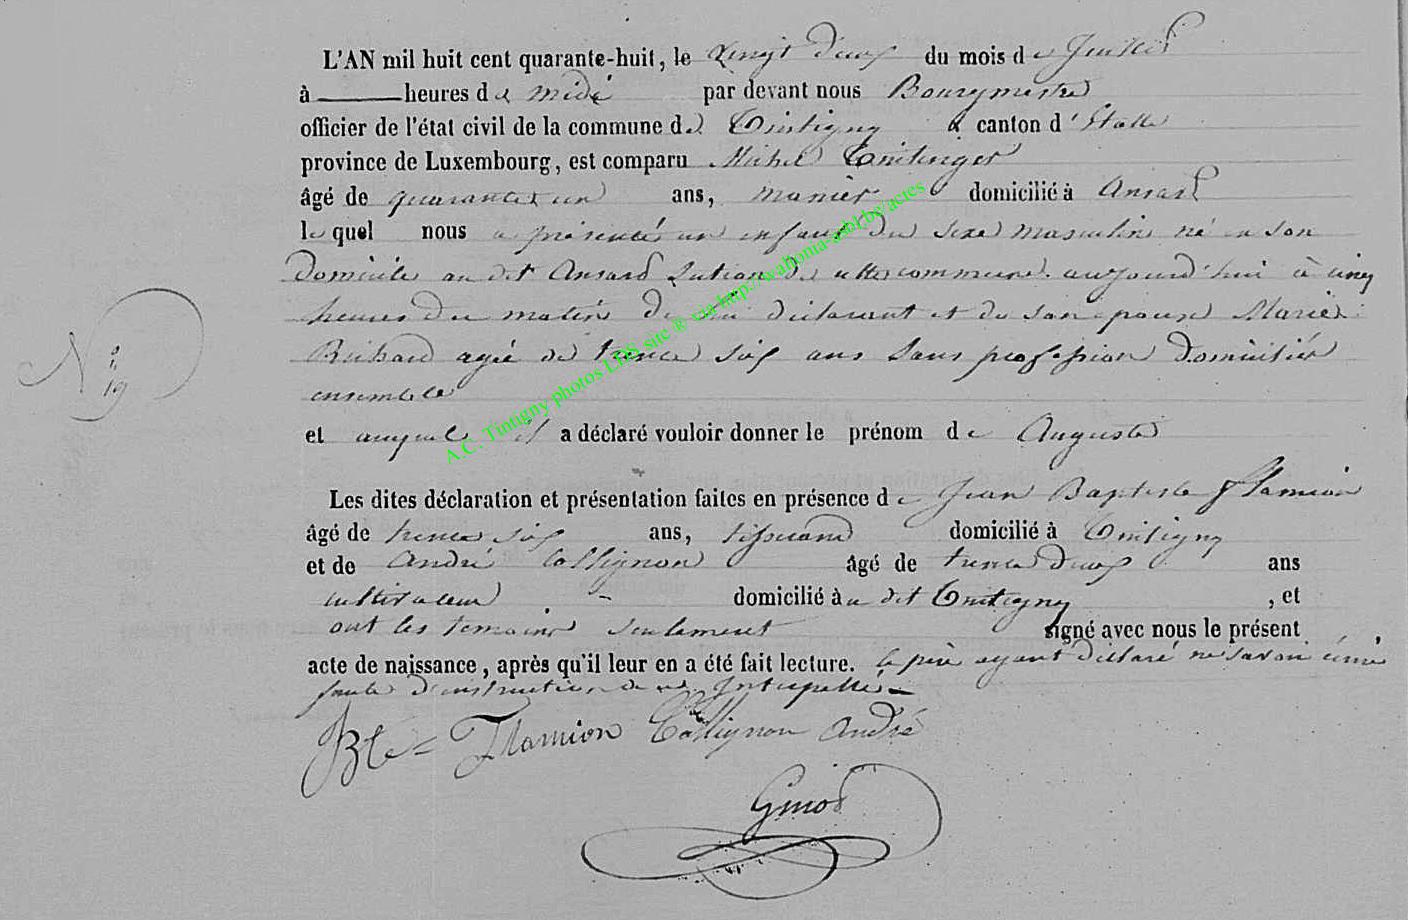 L'AN mil huit cent quarante-huit, le vingt deux du mois de Juillet
à heures de midi par devant nous Bourgmestre
officier de l'état civil de la commune de Tintigny canton d'Etalle
province de Luxembourg, est comparu Michel
âgé de quarante un ans, domicilié à Ansart
le quel nous a présenté un enfant du sexe masculin né en son
domicile au dit Ansart Section de cette commune aujourd'hui à cinq
heures du matin de lui déclarant et de son épouse Marie
Richard agée de trente six ans sans profession domiciliés
ensemble
et auquel il a déclaré vouloir donner le prénom de Auguste
Les dites déclaration et présentation faites en présence de Jean Baptiste Flamion
âgé de trente six ans, tisserand domicilié à Tintigny
et de André Collignon âgé de trente deux ans
cultivateur domicilié à au dit Tintigny, et
ont les temoins seulement signé avec nous le présent
acte de naissance, après qu'il leur en a été fait lecture. le père ayant déclaré ne savoir
faute d'instruction de ce Interpellé
N° 19
Bte Flamion Collignon André
A.C. Tintigny photos LDS site ® via http://wallonia-asbl.be/actes